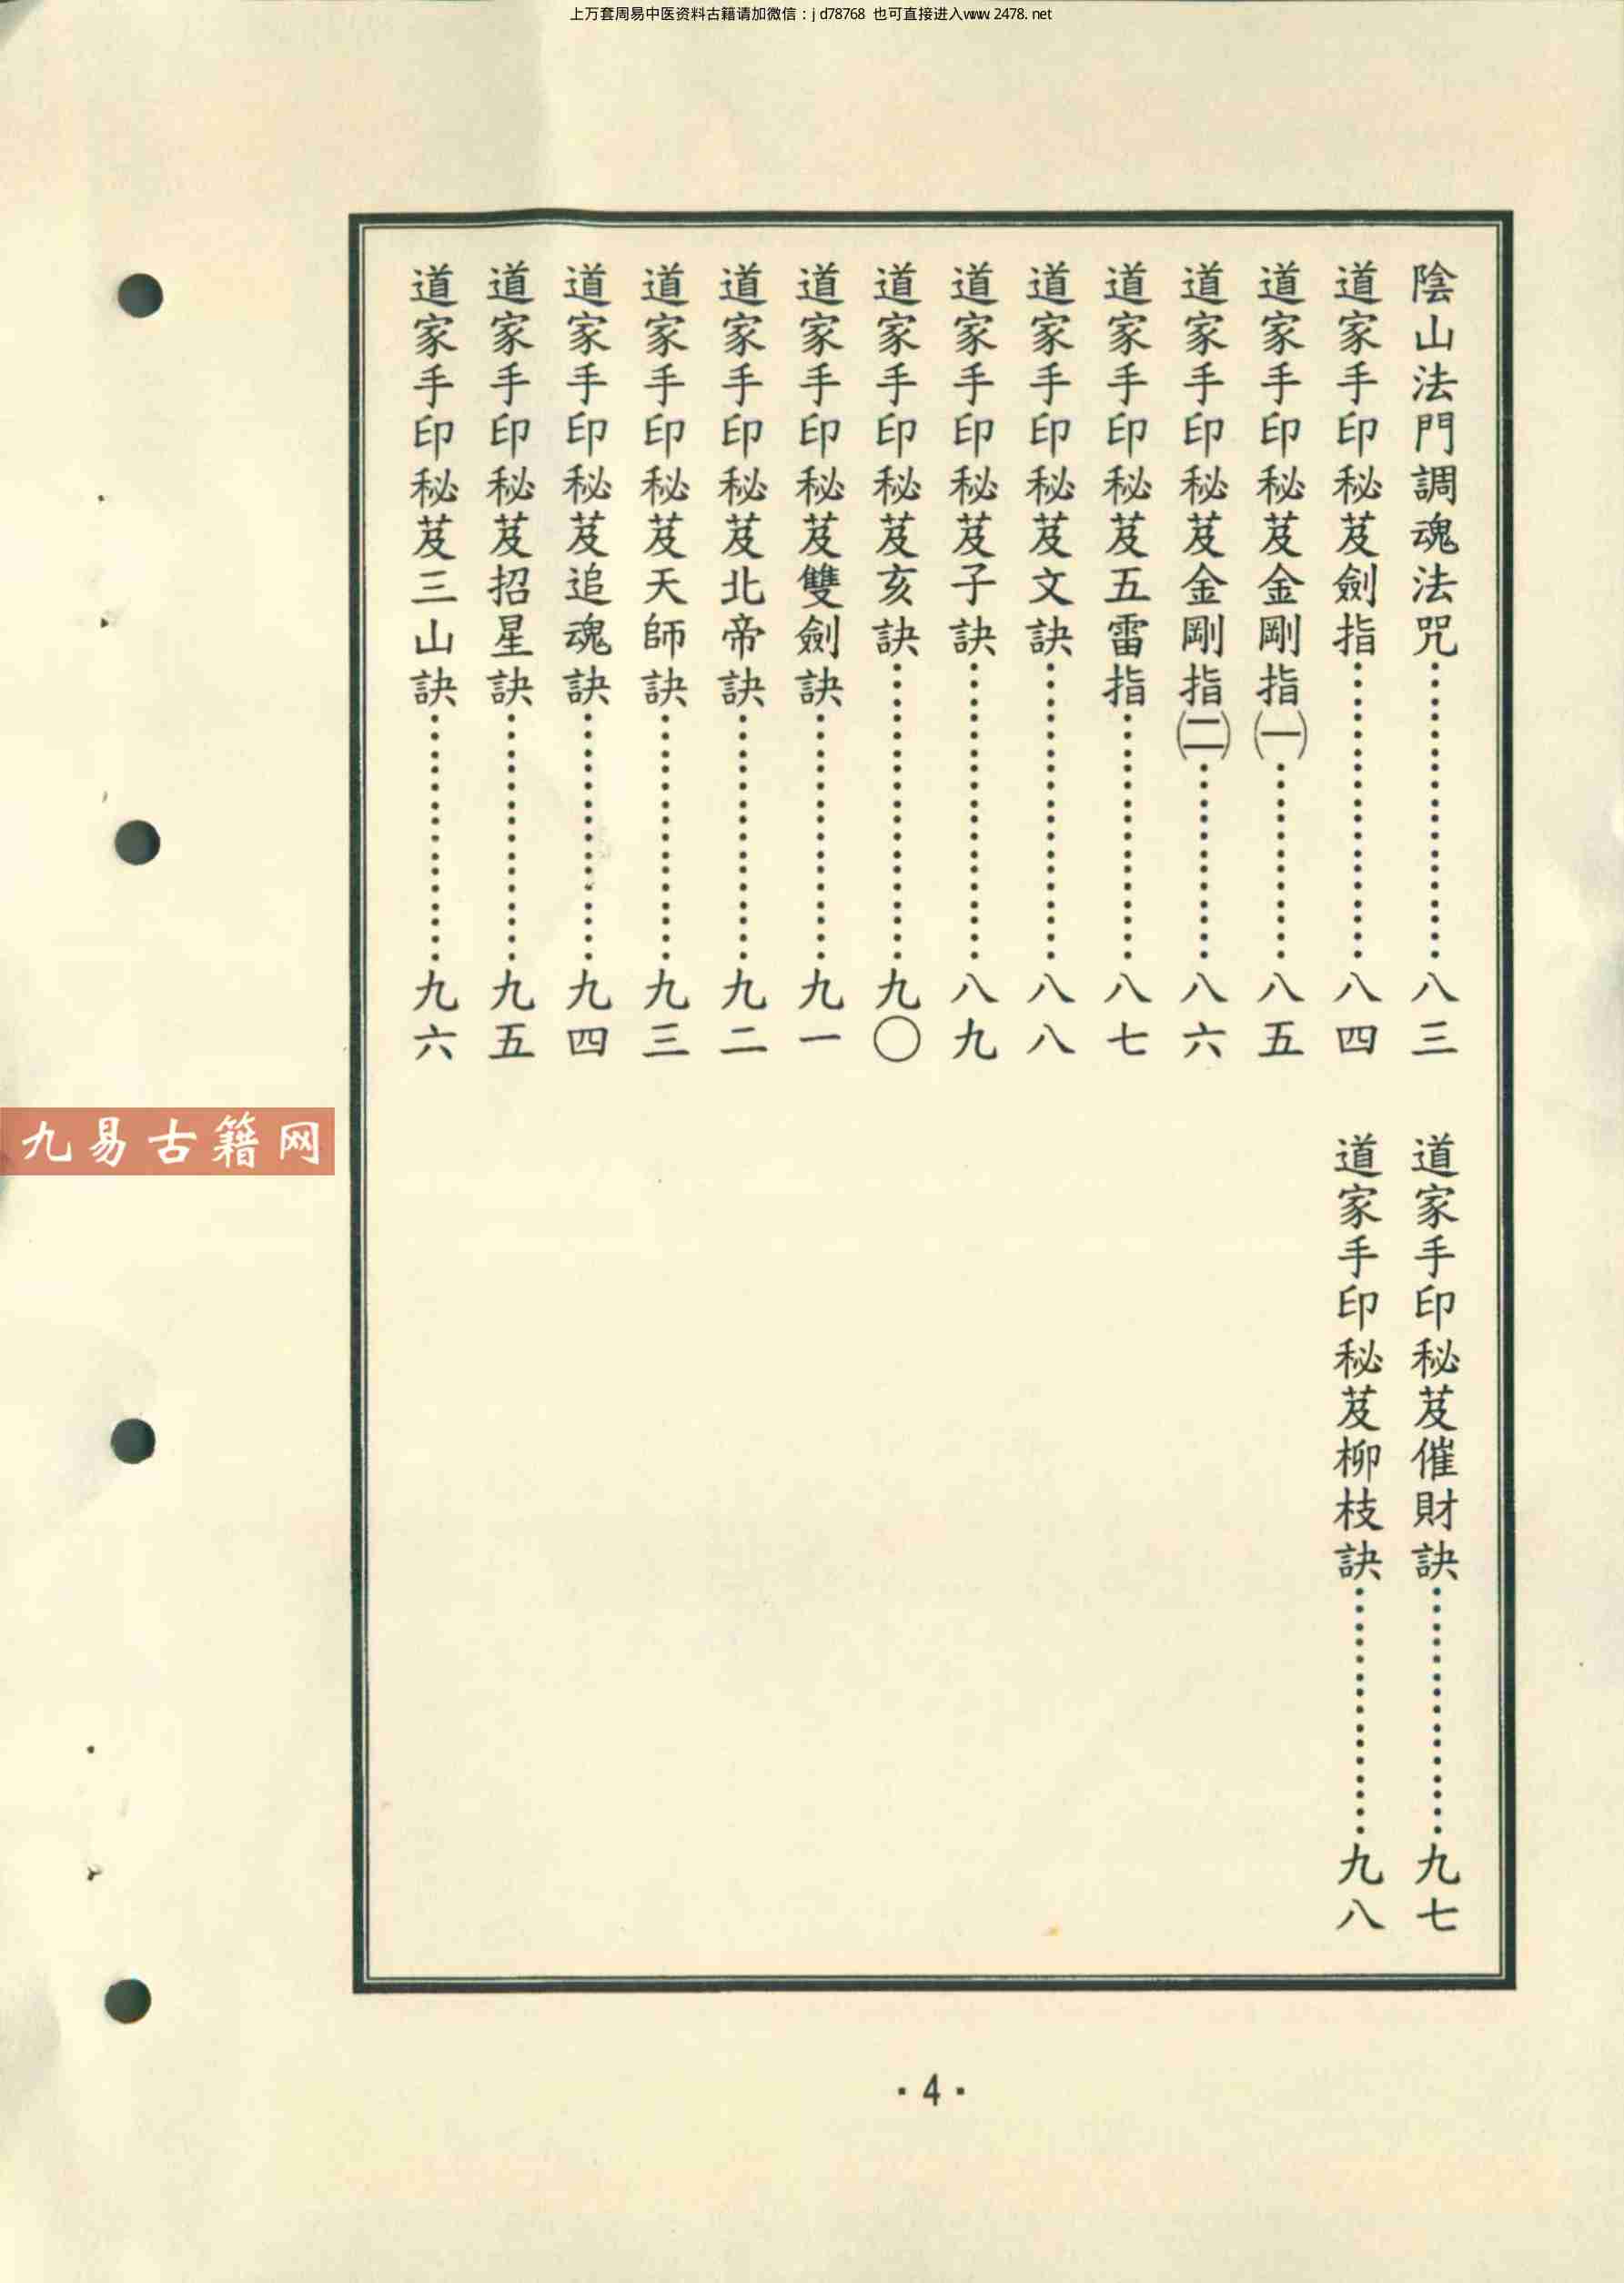 上万套周易中医资料古籍请加微信：jd78768 也可直接进入www.2478.net
陰山法門調魂法咒……………………八三
道家手印秘芨劍指……………………八四
道家手印秘芨金剛指㈠………………八五
道家手印秘芨金剛指㈡………………八六
道家手印秘芨五雷指…………………八七
道家手印秘芨文訣……………………八八
道家手印秘芨子訣……………………八九
道家手印秘芨亥訣……………………九〇
道家手印秘芨雙劍訣…………………九一
道家手印秘芨北帝訣…………………九二
道家手印秘芨天師訣…………………九三
道家手印秘芨追魂訣…………………九四
道家手印秘芨招星訣…………………九五
道家手印秘芨三山訣…………………九六
道家手印秘芨催財訣…………………九七
道家手印秘芨柳枝訣…………………九八
九易古籍网
·4·